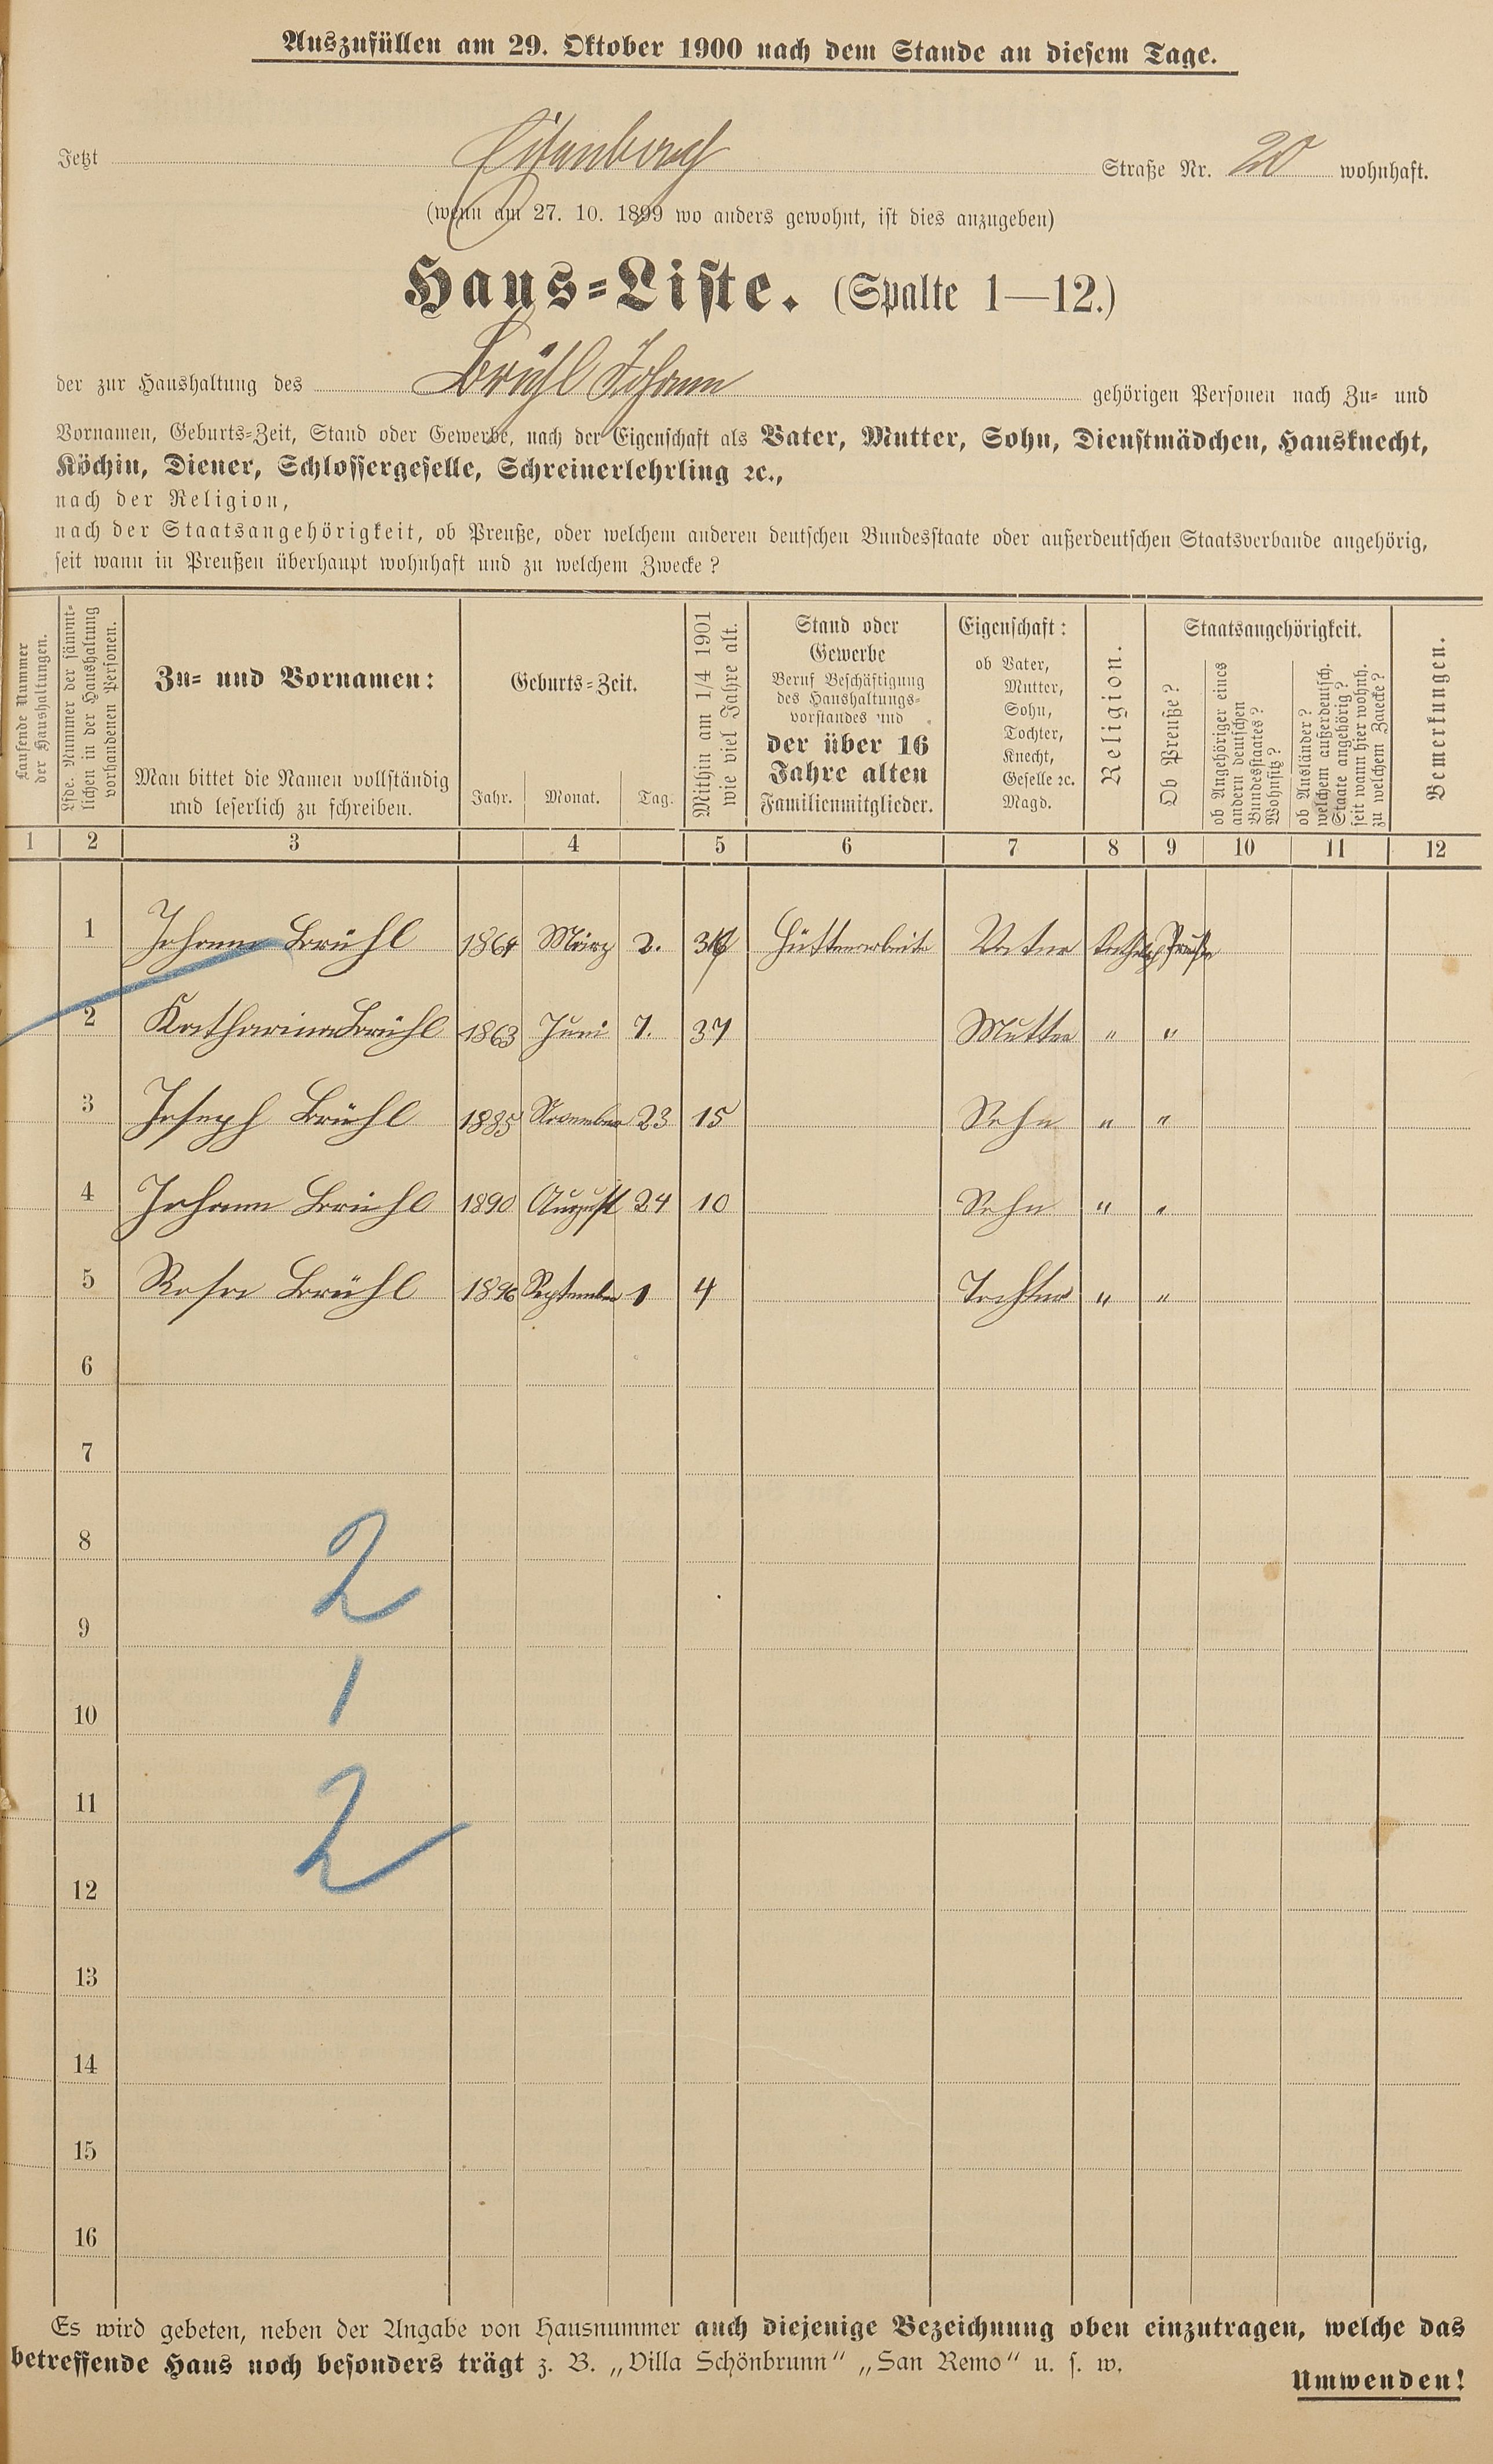 Auszufüllen am 29. Oktober 1900 nach dem Stande an diesem Tage.
Jetzt Straße Nr. 20 wohnhaft.
(wenn am 27. 10. 1899 wo anders gewohnt, ist dies anzugeben)
Haus=Liste. (Spalte 1—12.)
der zur Haushaltung des Brühl Johann gehörigen Personen nach Zu= und
Vornamen, Geburts=Zeit, Stand oder Gewerbe, nach der Eigenschaft als Vater, Mutter, Sohn, Dienstmädchen, Hausknecht,
Köchin, Diener, Schlossergeselle, Schreinerlehrling ꝛc.,
nach der Religion,
nach der Staatsangehörigkeit, ob Preuße, oder welchem anderen deutschen Bundesstaate oder außerdeutschen Staatsverbande angehörig,
seit wann in Preußen überhaupt wohnhaft und zu welchem Zwecke?
Laufende Nummer
der Haushaltungen.
Lfde. Nummer der sämmt=
lichen in der Haushaltung
vorhandenen Personen.
Zu= und Vornamen:
Man bittet die Namen vollständig
und leserlich zu schreiben.
Geburts=Zeit.
Jahr. Monat. Tag.
Mithin am 1/4 1901
wie viel Jahre alt.
Stand oder
Gewerbe
Beruf Beschäftigung
des Haushaltungs=
vorstandes und
der über 16
Jahre alten
Familienmitglieder.
Eigenschaft:
ob Vater,
Mutter,
Sohn,
Tochter,
Knecht,
Geselle ꝛc.
Magd.
Religion.
Staatsangehörigkeit.
Ob Preuße?
ob Angehöriger eines
andern deutschen
Bundesstaates?
Wohnsitz?
ob Ausländer?
welchem außerdeutsch.
Staate angehörig?
seit wann hier wohnh.
zu welchem Zwecke?
Bemerkungen.
1 2 3 4 5 6 7 8 9 10 11 12
1 Johann Brühl 1864 März 2. Hüttenarbeiter Vater Kathol. Preuße
2 Katharina Brühl 1863 Juni 7. 37 Mutter " "
3 Joseph Brühl 1885 November 23 15 Sohn " "
4 Johann Brühl 1890 August 24 10 Sohn " "
5 Rosa Brühl 1896 September 1 4 Tochter " "
6
7
8
2
9
10
1
11
2
12
13
14
15
16
Es wird gebeten, neben der Angabe von Hausnummer auch diejenige Bezeichnung oben einzutragen, welche das
betreffende Haus noch besonders trägt z. B. „Villa Schönbrunn" „San Remo" u. s. w.
Umwenden!